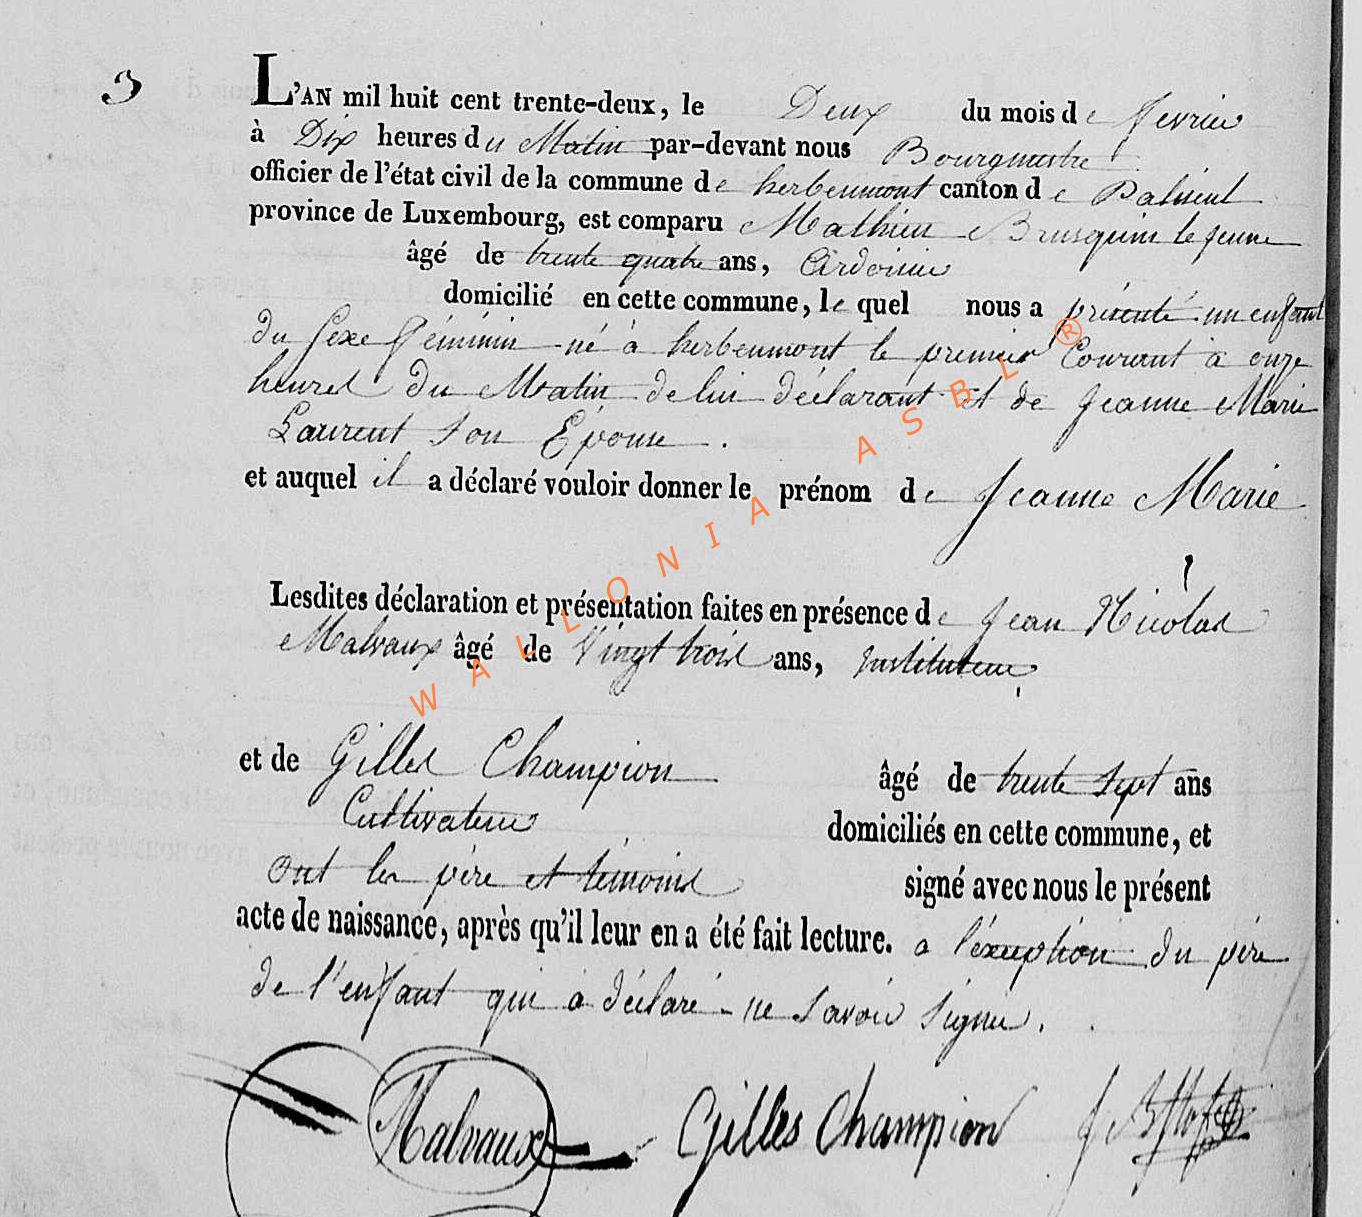 3
L'AN mil huit cent trente-deux, le Deux du mois de fevrier
à Dix heures du Matin par-devant nous Bourgmestre
officier de l'état civil de la commune de herbeumont canton de Paliseul
province de Luxembourg, est comparu Mathieu Brusquin le jeune
âgé de trente quatre ans, Ardoisier
domicilié en cette commune, lequel nous a présenté un enfant
du sexe féminin né à herbeumont le premier Courant à onze
heures du Matin de lui déclarant et de Jeanne Marie
Laurent son Epouse.
et auquel il a déclaré vouloir donner le prénom de Jeanne Marie
Lesdites déclaration et présentation faites en présence de Jean Nicolas
Malvaux âgé de Vingt trois ans, Instituteur
et de Gilles Champion âgé de trente sept ans
Cultivateur domiciliés en cette commune, et
ont les père et témoins signé avec nous le présent
acte de naissance, après qu'il leur en a été fait lecture. a l'éxeption du père
de l'enfant qui a déclaré ne savoir signer.
Malvaux Gilles Champion
WALLONIA ASBL ®